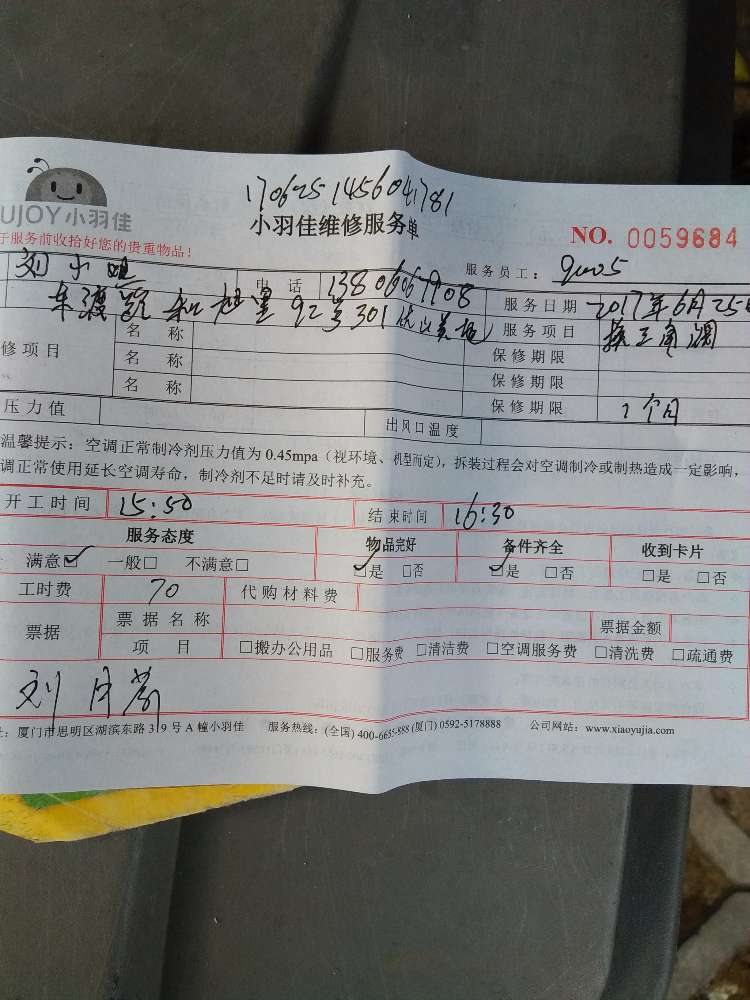 1706251456041781
UJOY小羽佳
小羽佳维修服务单
NO. 0059684
于服务前收拾好您的贵重物品！
服务员工：
刘小姐 电话
服务日期 2017年6月25日
92号301
服务项目 换三角阀
修项目 名称 保修期限
名称 保修期限
名称 保修期限 1个月
压力值 出风口温度
温馨提示：空调正常制冷剂压力值为 0.45mpa（视环境、机型而定），拆装过程会对空调制冷或制热造成一定影响，
调正常使用延长空调寿命，制冷剂不足时请及时补充。
开工时间 15:50 结束时间 16:30
服务态度 物品完好 备件齐全 收到卡片
满意☑ 一般□ 不满意□ ☑是 □否 ☑是 □否 □是 □否
工时费 70 代购材料费
票据 票据名称 票据金额
项目 □搬办公用品 □服务费 □清洁费 □空调服务费 □清洗费 □疏通费
刘月
：厦门市思明区湖滨东路 319 号 A 幢小羽佳 服务热线：(全国) 400-6655-888 (厦门) 0592-5178888 公司网站：www.xiaoyujia.com